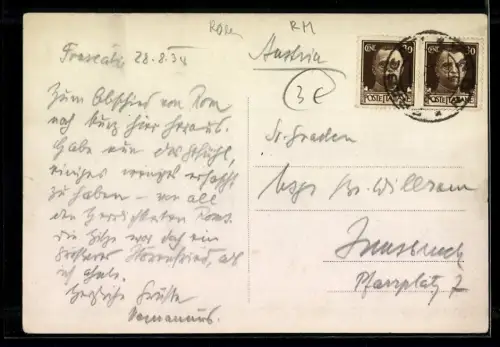 Rom
RM
Frascati 28.8.34
Austria
3€
CENT. 30
POSTE ITALIANE
CENT. 30
POSTE ITALIANE
Zum Abschied von Rom
noch kurz hier heraus.
Habe nun das Gefühl,
einiges wenige erfasst
zu haben – von all
den Herrlichkeiten Roms.
die Hitze war doch ein
grösserer Störenfried, als
ich ahnte.
Herzliche Grüsse
Sr. Gnaden
Msgr. Dr. Willram
Innsbruck
Pfarrplatz 7